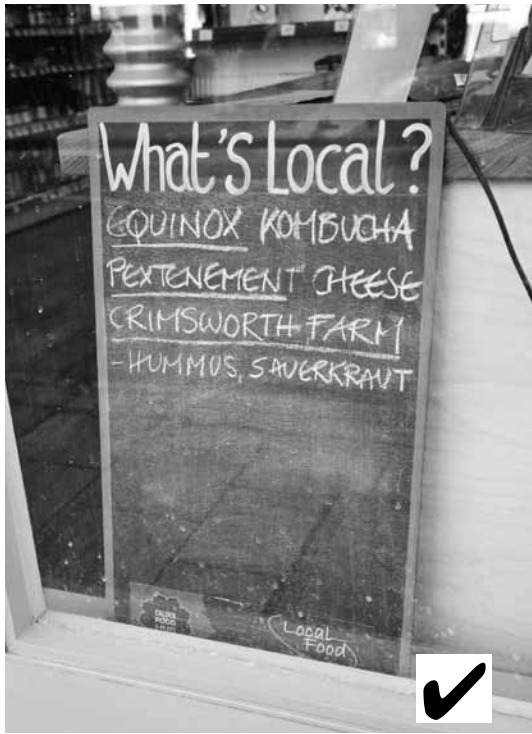 What's Local?
EQUINOX KOMBUCHA
PEXTENEMENT CHEESE
CRIMSWORTH FARM
- HUMMUS, SAUERKRAUT
FOOD
Local
Food